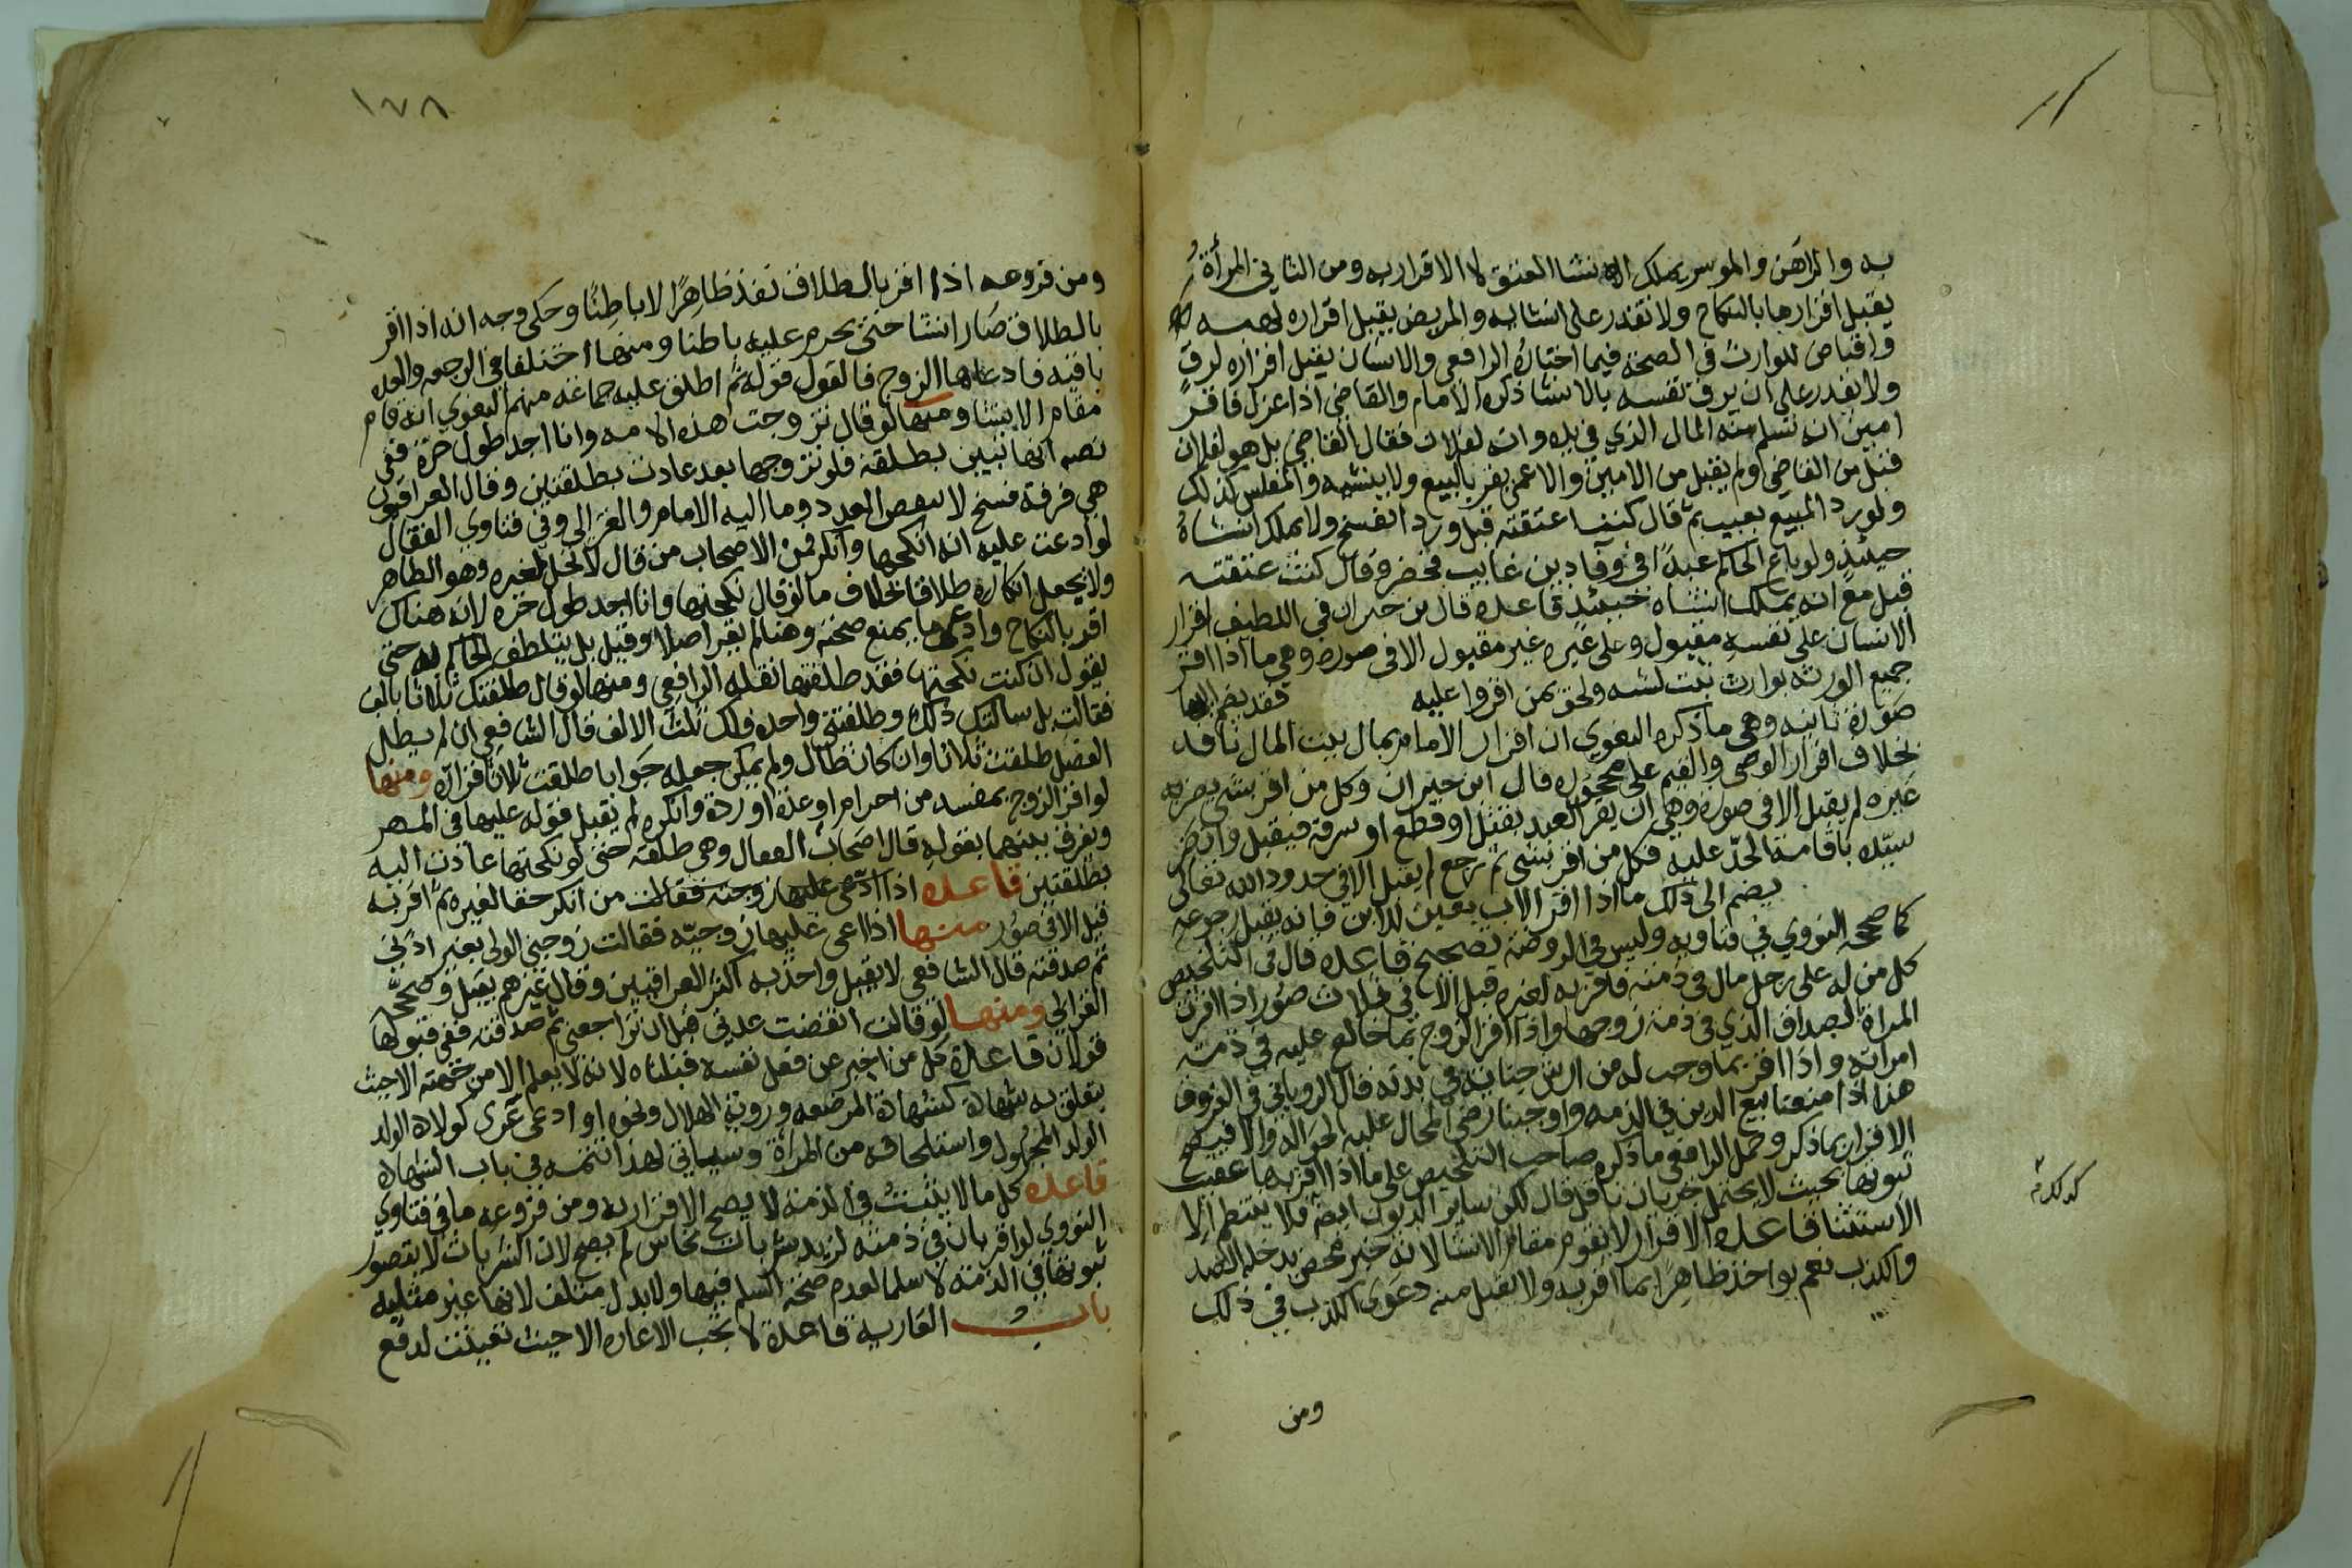 به والراهن والموسر يملك الانشا العتق لا الاقرار به ومن الثاني المرأة
يقبل اقرارها بالنكاح ولا تقدر على انشايه والمريض يقبل اقراره لهبه
واقباض للوارث في الصحة فيما اختاره الرافعي والانسان يقبل اقراره لرق
ولا يقدر على ان يرق نفسه بالانشا ذكره الامام والقاضي اذا عزل فاقر
امين انه تسلم منه المال الذي في يده وانه لفلان فقال القاضي بل هو لفلان
قبل من القاضي ولم يقبل من الامين والاعمى يقر بالبيع ولا ينشيه والمفلس كذلك
ولو رد المبيع بعيب ثم قال كنت اعتقته قبل ورد الفسخ ولا يملك انشاه
حينئذ ولو باع الحاكم عبدا في وفا دين غايب فحضر وقال كنت عتقته
قبل مع انه يملك انشاه حينئذ قاعده قال بن خيران في اللطيف اقرار
الانسان على نفسه مقبول وعلى غيره غير مقبول الا في صوره وهي ما اذا اقر
جميع الورثه بوارث ثبت نسبه ولحق بمن اقروا عليه فقد يضم اليها
صورة ثانيه وهي ما ذكره البغوي ان اقرار الامام بمال بيت المال نافذ
بخلاف اقرار الوصي والقيم على محجوره قال ابن خيران وكل من اقر بشي يضر به
غيره لم يقبل الا في صورة وهي ان يقر العبد بقتل او قطع او سرقة فيقبل وان ضر
سيده باقامة الحد عليه فكل من اقر بشي ثم رجع لم يقبل الا في حدود الله تعالى
يضم الى ذلك ما اذا اقر الاب بعين للابن فانه يقبل رجوعه
كما صححه النووي في فتاويه وليس في الروضة تصحيح قاعده قال في التلخيص
كل من له على رجل مال في ذمته فاقر به لغيره قبل الا في ثلاث صور اذا اقرت
المراة بالصداق الذي في ذمة زوجها واذا اقر الزوج بما خالع عليه في ذمة
امراته واذا اقر بما وجب له من ارش جناية في بدنه قال الروياني في الفروق
هذا اذا منعنا بيع الدين في الذمه واوجبنا رضي المحال عليه لحواله والا فيصح
الاقرار بما ذكر وحمل الرافعي ما ذكره صاحب التلخيص على ما اذا اقر بها عقب
ثبوتها بحيث لا يحتمل جريان ناقل قال لكن ساير الديون ايضا فلا ينتظم الا
الاستثنا قاعده الاقرار لا يقوم مقام الانشا لانه خبر محض يدخله الصدق
والكذب نعم يواخذ ظاهرا بما اقر به ولا يقبل منه دعوى الكذب في ذلك
ومن
١٧٨
ومن فروعه اذا اقر بالطلاق نفذ ظاهرا لا باطنا وحكى وجه انه اذا اقر
بالطلاق صار انشا حتى يحرم عليه باطنا ومنها اختلفا في الرجعه والعده
باقيه فادعاها الزوج فالقول قوله ثم اطلق عليه جماعة منهم البغوي انه قام
مقام الانشا ومنها لو قال تزوجت هذه الامه وانا اجد طول حرة ففي
نصه انها تبين بطلقة فلو تزوجها بعد عادت بطلقتين وقال العراقيون
هي فرقة فسخ لا تنقص العدد وما اليه الامام والغزالي وفي فتاوي القفال
لو ادعت عليه انه انكحها وانكر فمن الاصحاب من قال لا تحل لغيره وهو الظاهر
ولا يجعل انكاره طلاقا بخلاف ما لو قال نكحتها وانا اجد طول حره لانه هناك
اقر بالنكاح وادعى ما يمنع صحته وهنا لم يقر اصلا وقيل بل يتلطف الحاكم به حتى
يقول ان كنت نكحتها فقد طلقتها نقله الرافعي ومنها لو قال طلقتك ثلاثا بالف
فقالت بل سالتك ذلك وطلقتني واحده فلك ثلث الالف قال الشافعي ان لم يطل
الفصل طلقت ثلاثا وان كان طال ولم يمكن جعله جوابا طلقت ثلاثا اقراره ومنها
لو اقر الزوج بمفسد من احرام او عدة او ردة وانكره لم يقبل قوله عليها في المهر
ويفرق بينهما بقوله قال اصحاب القفال وهي طلقة حتى لو نكحتها عادت اليه
بطلقتين قاعده اذا ادعى عليها زوجته فقالت من انكر حقا لغيره ثم اقر به
قبل الا في صور منها اذا ادعى عليها زوجيه فقالت زوجني الولي بغير اذني
ثم صدقته قال الشافعي لا يقبل واخذ به اكثر العراقيين وقال غيرهم يقبل وصححه
الغزالي ومنها لو قالت انقضت عدتي قبل ان تراجعني ثم صدقته ففي قبولها
قولان قاعدة كل من اخبر عن فعل نفسه قبلناه لانه لا يعلم الا من جهته الا حيث
يتعلق به شهادة كشهادة المرضعه وروية الهلال ونحوه او ادعى عرى كولادة الولد
الولد المجهول واستلحاقه من المرأة وسياتي لهذا تتمه في باب الشهاده
قاعده كل ما لا يثبت في الذمة لا يصح الاقرار به ومن فروعه ما في فتاوي
النووي لو اقر بان في ذمته لزيد شربات نحاس لم يصح لان الشربات لا يتصور
ثبوتها في الذمة لا سلما لعدم صحة السلم فيها ولا بدل متلف لانها غير مثليه
باب العارية قاعدة لا تجب الاعاره الا حيث تعينت لدفع